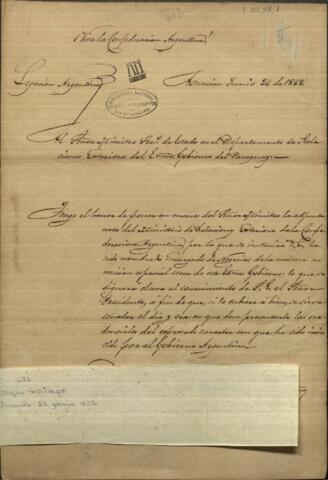 ¡Viva la Confederacion Argentina!
Legacion Argentina
Asuncion Junio 24 de 1852
Al Señor Ministro Sec.º de Estado en el Departamento de Rela-
ciones Exteriores del Exmo. Gobierno del Paraguay.
Tengo el honor de poner en manos del Señor Ministro la adjunta
nota del Ministerio de Relaciones Exteriores de la Confe-
deracion Argentina, por la que se
sido nombrado Encargado de Negocios de la misma en
mision especial cerca de este Exmo. Gobierno; lo que se
dignará elevar al conocimiento de S. E. el Señor
Presidente, a fin de que, si lo tubiere a bien, se sirva
señalar el dia y ora en que deva presentarle las cre-
denciales del espresado caracter con que ha sido
por el Gobierno Argentino.
Santiago
Asunción 24 junio 1852